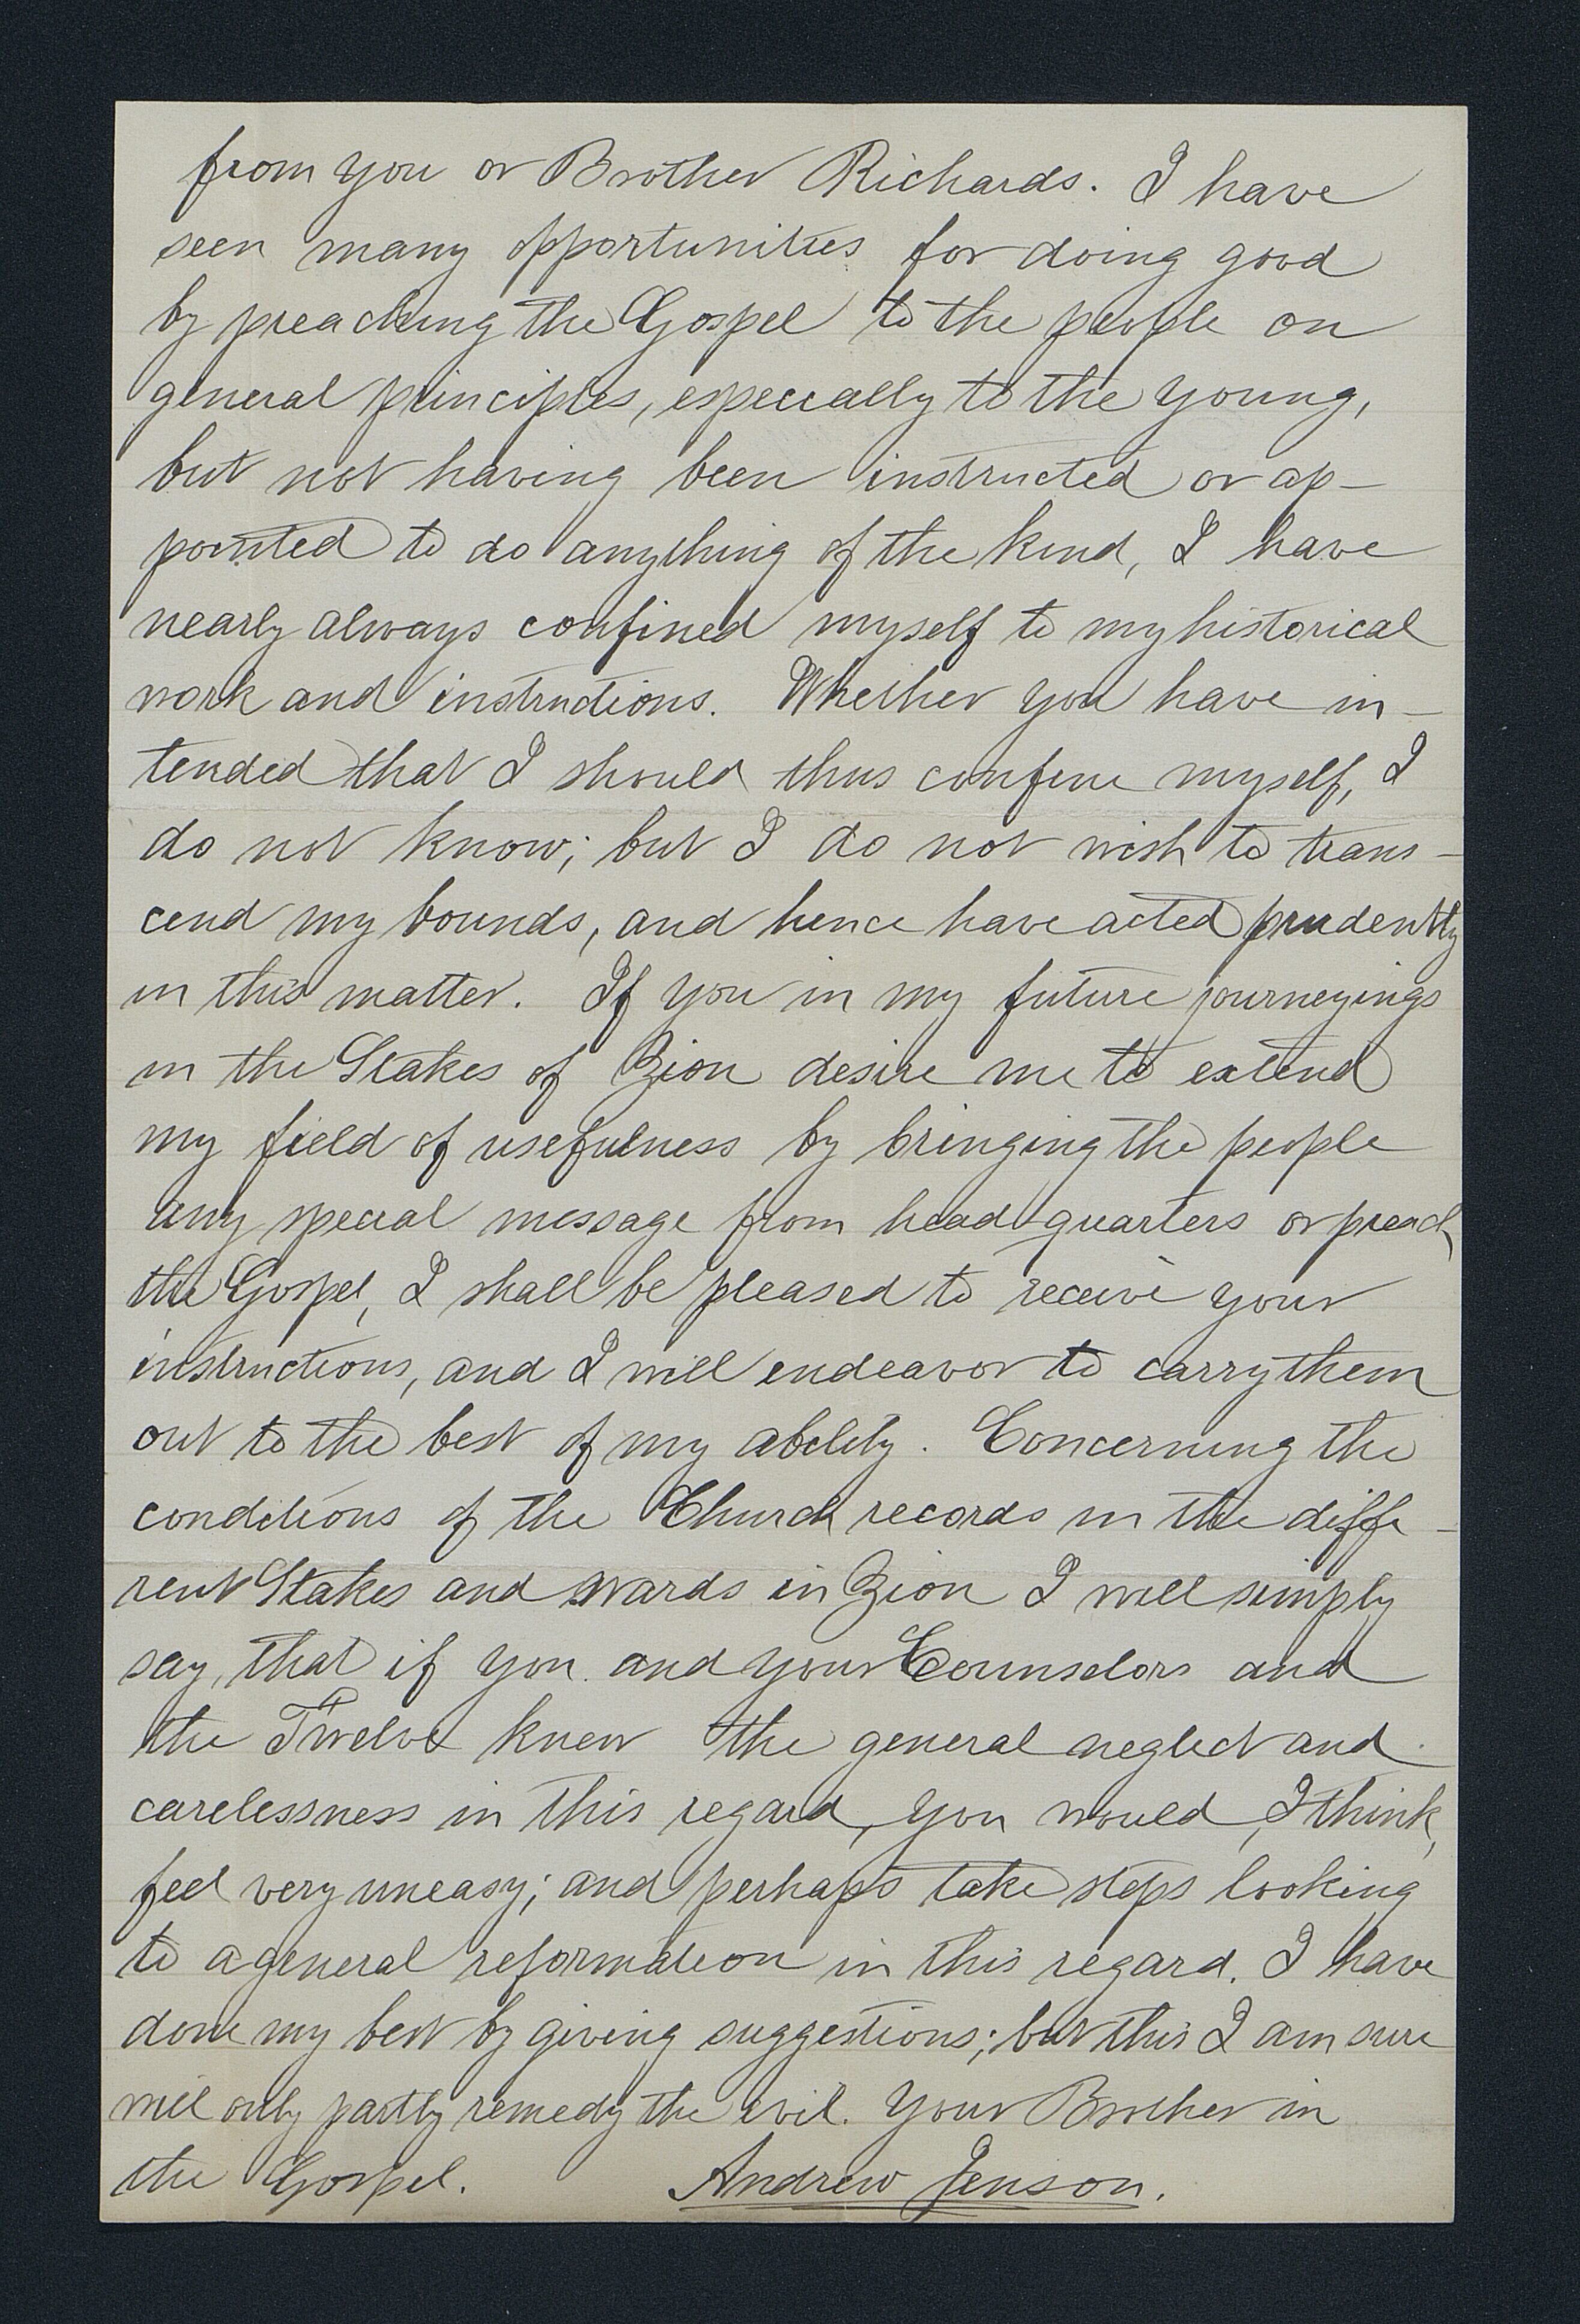 from you or Brother Richards. I have
seen many opportunities for doing good
by preaching the Gospel to the people on
general principles, especially to the young,
but not having been instructed or ap-
pointed to do anything of the kind, I have
nearly always confined myself to my historical
work and instructions. Whether you have in-
tended that I should thus confine myself, I
do not know; but I do not wish to trans-
cend my bounds, and hence have acted prudently
in this matter. If you in my future journeyings
in the Stakes of Zion desire me to extend
my field of usefulness by bringing the people
any special message from head quarters or preach
the Gospel, I shall be pleased to receive your
instructions, and I will endeavor to carry them
out to the best of my ability. Concerning the
conditions of the Church records in the diffe-
rent Stakes and wards in Zion I will simply
say, that if you and your Counselors and
the Twelve knew the general neglect and
carelessness in this regard, you would, I think,
feel very uneasy; and perhaps take steps looking
to a general reformation in this regard. I have
done my best by giving suggestions; but this I am sure
will only partly remedy the evil. Your Brother in
the Gospel. Andrew Jenson.